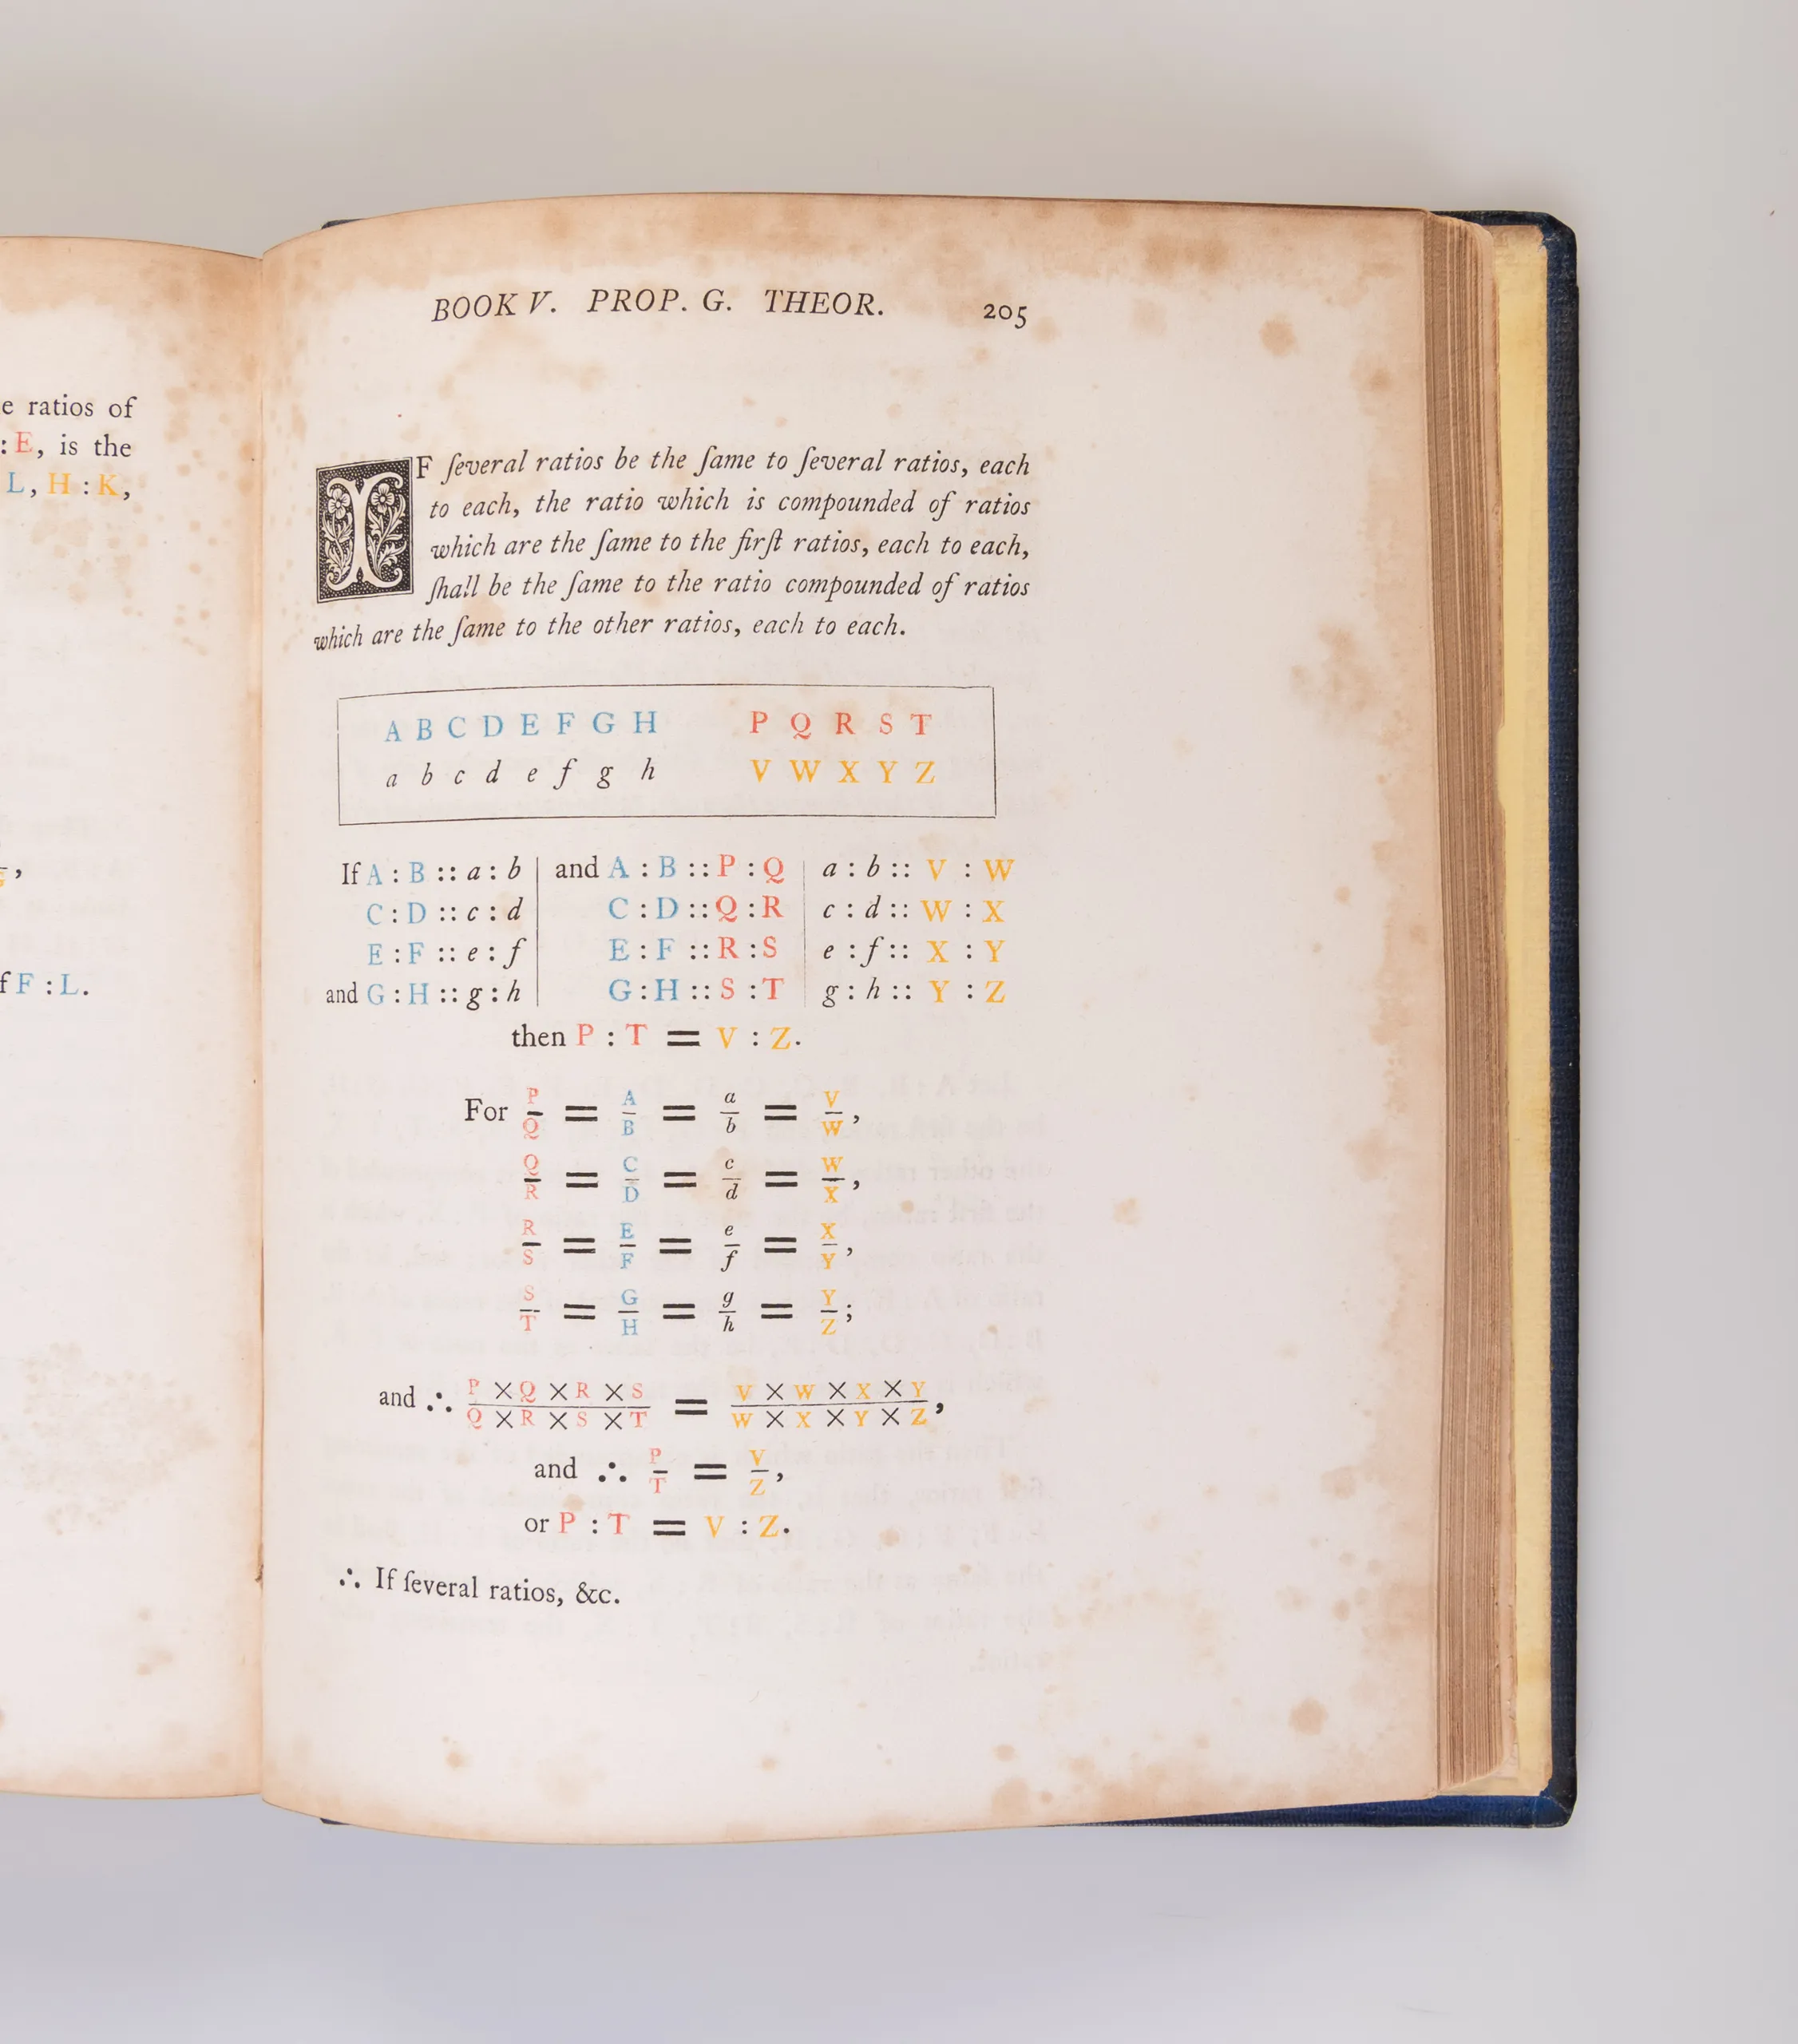 e ratios of
: E, is the
L, H : K,
,
f F : L.
BOOK V. PROP. G. THEOR. 205
IF ſeveral ratios be the ſame to ſeveral ratios, each
to each, the ratio which is compounded of ratios
which are the ſame to the firſt ratios, each to each,
ſhall be the ſame to the ratio compounded of ratios
which are the ſame to the other ratios, each to each.
A B C D E F G H P Q R S T
a b c d e f g h V W X Y Z
If A : B :: a : b and A : B :: P : Q a : b :: V : W
C : D :: c : d C : D :: Q : R c : d :: W : X
E : F :: e : f E : F :: R : S e : f :: X : Y
and G : H :: g : h G : H :: S : T g : h :: Y : Z
then P : T = V : Z.
For P/Q = A/B = a/b = V/W,
Q/R = C/D = c/d = W/X,
R/S = E/F = e/f = X/Y,
S/T = G/H = g/h = Y/Z;
and ∴ P × Q × R × S / Q × R × S × T = V × W × X × Y / W × X × Y × Z,
and ∴ P/T = V/Z,
or P : T = V : Z.
∴ If ſeveral ratios, &c.